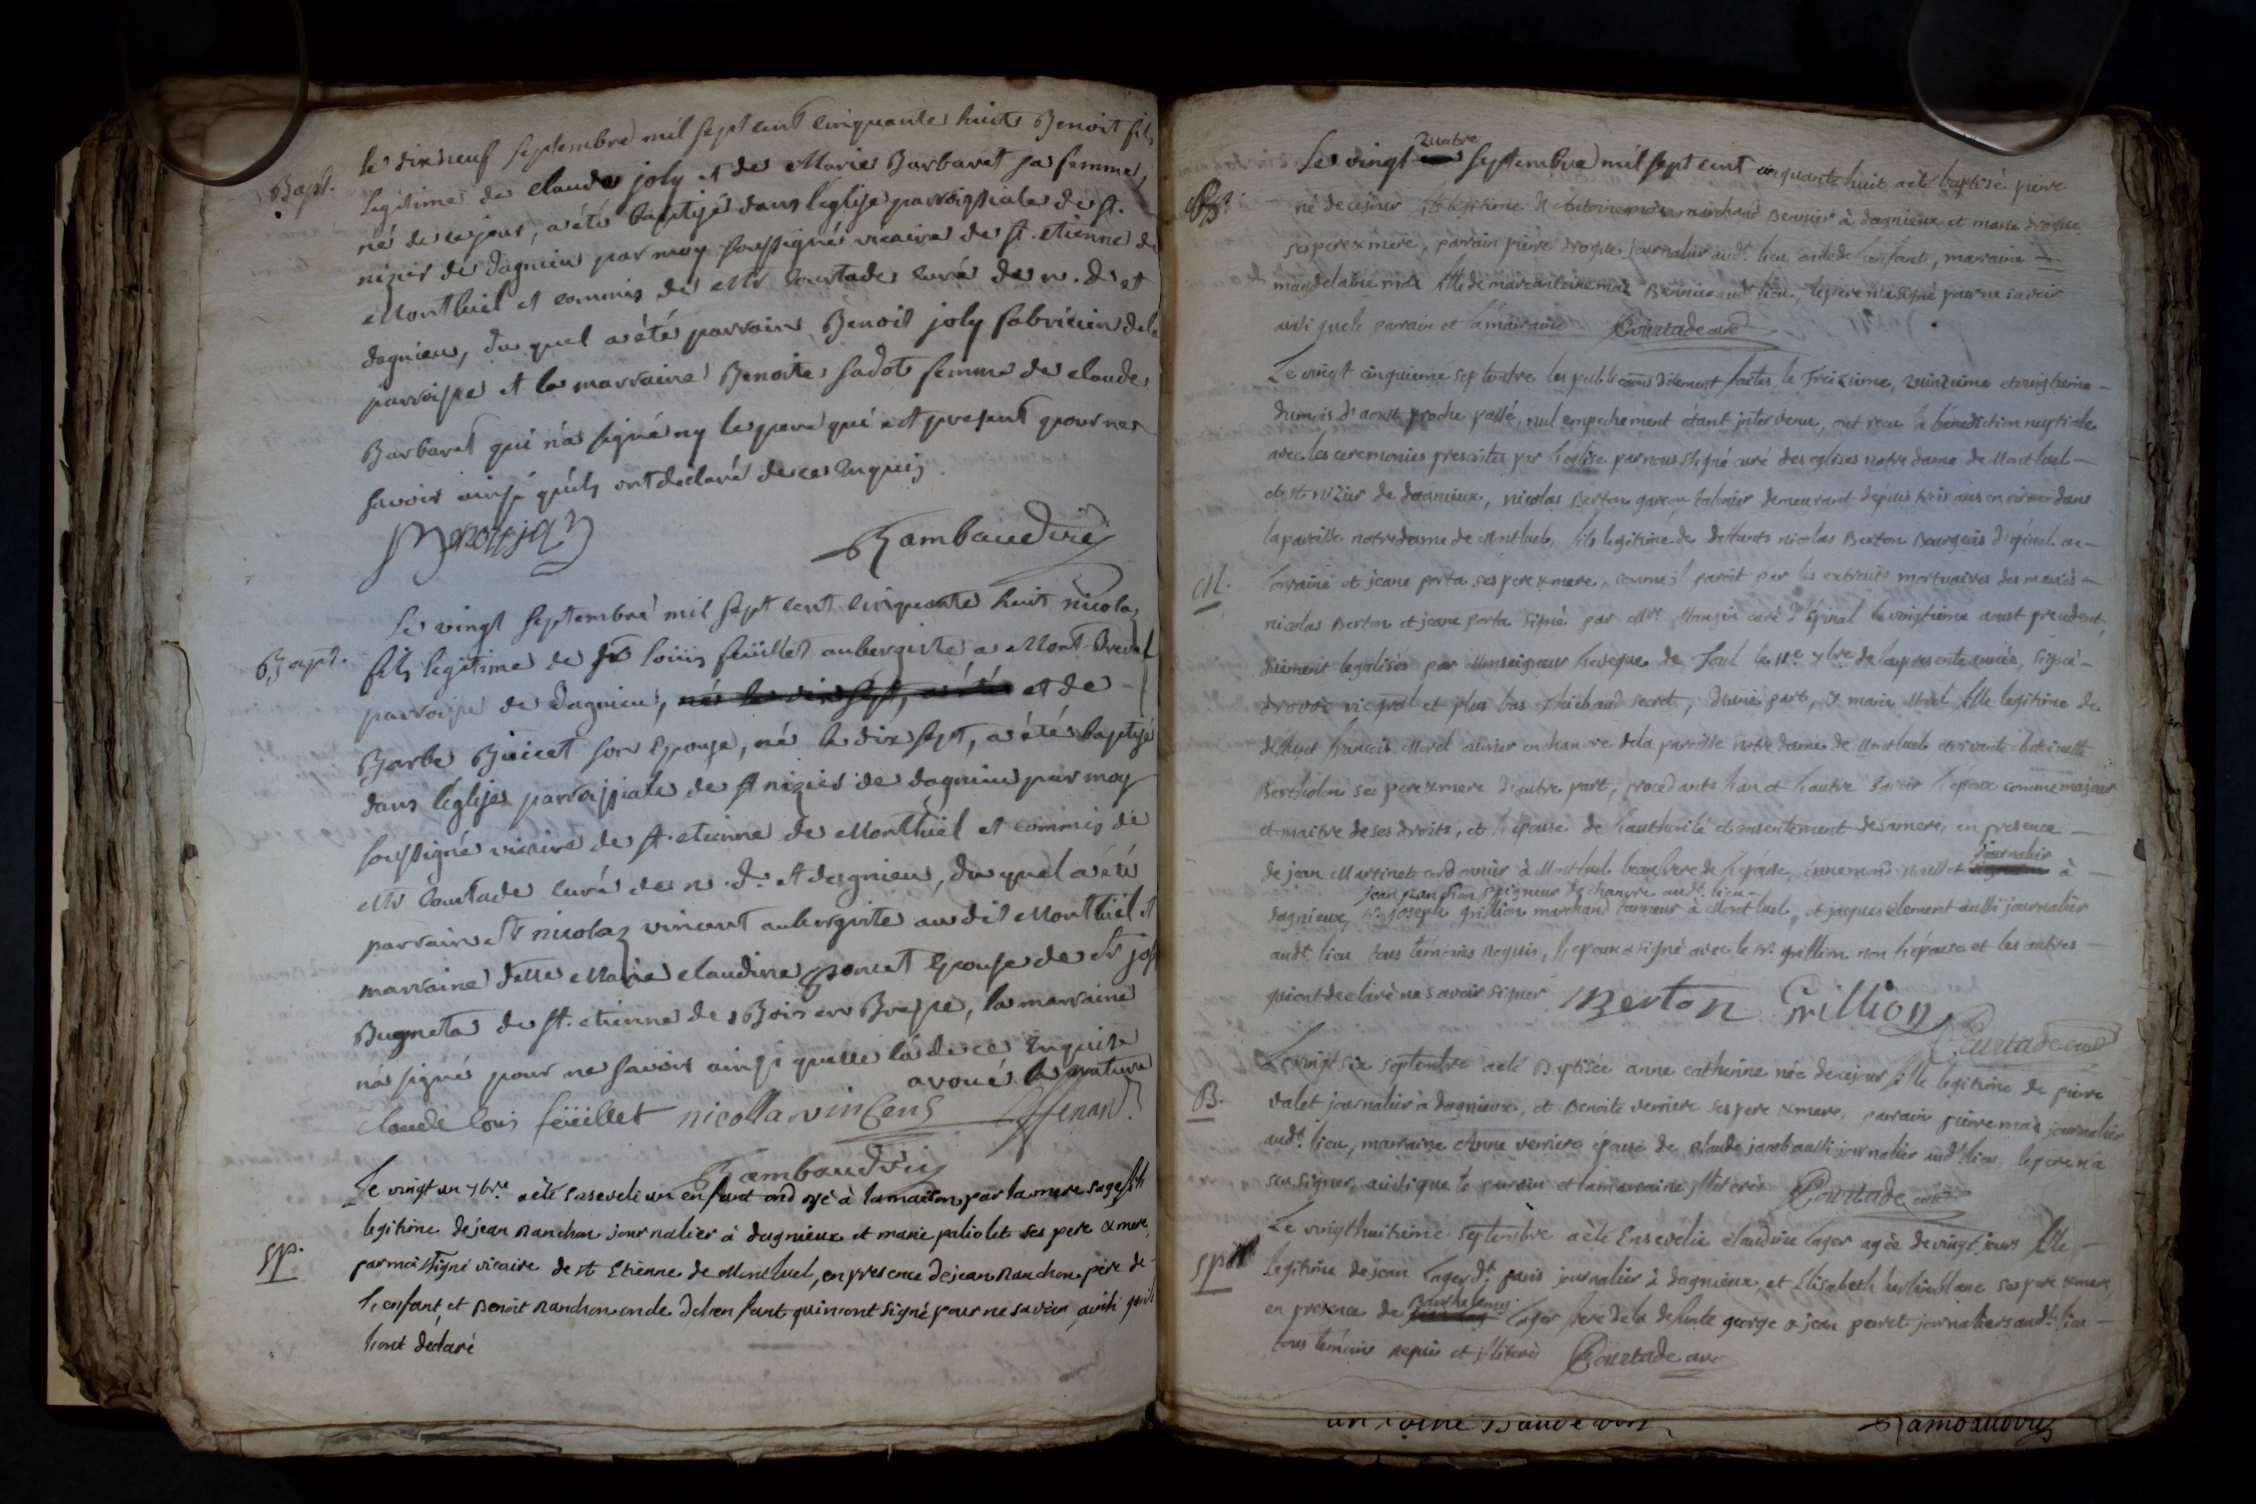 le dixneuf septembre mil sept cent cinquante huit Benoit fils
Bapt. legitime de claude joly et de Marie Barbaret sa femme,
né de ce jour, a été baptisé dans l'eglise parroissiale de st.
nizier de dagnieu par moy soussigné vicaire de st. etienne de
Montluel et commis de Mr Courtade curé de n. d. et
dagnieu, du quel a été parrain Benoit joly fabricien de la
parroisse et la marraine Benoite sadot femme de claude
Barbaret qui n'a signé ny le pere qui est present pour ne
savoir ainsi qu'ils ont declaré de ce enquis
Rambaud vic
Le vingt septembre mil sept cent cinquante huit nicolas
Bapt. fils legitime de loüis feüillet aubergiste a Mont-Brevel
parroisse de dagnieu, et de
Barbe son Epouse, né le dix sept, a été baptisé
dans l'eglise parroissiale de st nizier de dagnieu par moy
soussigné vicaire de st. etienne de Montluel et commis de
Mr Courtade curé de n. d. et dagnieu, du quel a été
parrain Sr nicolas vincent aubergiste au dit Montluel et
marraine delle Marie claudine poncet Epouse de Sr jos
Bugneta de st. etienne des Bois en Bresse, la marraine
n'a signé pour ne savoir ainsi quelle la de ce enquise
avoué la rature
claude loüis feüillet nicolla vincens
Rambaud vic
Le vingt un 7bre a été enseveli un enfant ondoyé à la maison par la mere sage fils
legitime de jean Ranchon journalier à dagnieux et marie paliolet ses pere & mere,
SP. par moi ssigné vicaire de st Etienne de Montluel, en presence de jean Ranchon pere de
l'enfant, et Benoit Ranchon oncle de l'enfant qui n'ont signé pour ne savoir, ainsi qu'ils
l'ont declaré
quatre
Le vingt septembre mil sept cent cinquante huit a été baptisé pierre
né de ce jour fils legitime d'Antoine marchand Bennier à dagnieux et marie drogue
ses pere & mere, parrain pierre drogue journalier audt. lieu oncle de l'enfant, marraine
magdelaine fille de marc antoine Bennier audt lieu, le pere n'a signé pour ne savoir
ainsi que le parrain et la marraine Courtade curé
Le vingt cinquieme septembre les publications dûement faites le treizieme, quinzieme et vingtieme
du mois d'aoust proche passé, nul empechement étant intervenu, ont recu la bénédiction nuptiale
avec les ceremonies prescrites par l'eglise par nous ssigné curé des eglises notre dame de Montluel
et st nizier de dagnieux, nicolas Berton garçon demeurant depuis trois ans environ dans
la paroisse notre dame de Montluel, fils legitime de deffunts nicolas Berton Bourgeois d'épinal en
M. Lorraine et jeane porta ses pere & mere, comme il paroit par les extraits mortuaires des mariés
nicolas Berton et jeane porta signé par Mre Mangin curé d'Epinal le vingtieme aoust precedent,
dûement legalisés par Monseigneur l'eveque de Toul le 11e 7bre de la presente année, signé
vic gral et plus bas Thiebaud secret, d'une part, & marie Morel fille legitime de
deffunt francois Morel ouvrier en chanvre de la paroisse notre dame de Montluel et vivante
Bertholon ses pere & mere d'autre part, procedants l'un et l'autre savoir l'epoux comme majeur
et maitre de ses droits, et l'epouse de l'authorité et consentement de sa mere, en presence
de jean Martinet cordonnier à Montluel beaufrere de l'épouse, journalier à
jean plantion peigneur de chanvre audt. lieu
dagnieux, sr. joseph grillion marchand tanneur à Montluel, et jaques clement aussi journalier
audt. lieu tous temoins requis, l'epoux a signé avec le sr. grillion non l'épouse et les autres
qui ont declaré ne savoir signer Merton Grillion
Courtade curé
Le vingt six septembre a été Baptisée anne catherine née de ce jour fille legitime de pierre
B. valet journalier à dagnieux, et Benoite verriere ses pere & mere, parrain pierre journalier
audt. lieu, marraine Anne verriere épouse de claude aussi journalier audt. lieu, le pere n'a
su signer, ainsi que le parrain et la marraine illiterés Courtade curé
Le vingt huitieme septembre a été Ensevelie claudine Cager agée de vingt jours fille
SP. legitime de jean Cager dt. paris journalier à dagnieux, et Elisabeth ses pere & mere,
Barthelemy
en presence de Cager frere de la defunte george & jean peret journaliers audt. lieu
tous temoins requis et illiterés Courtade curé